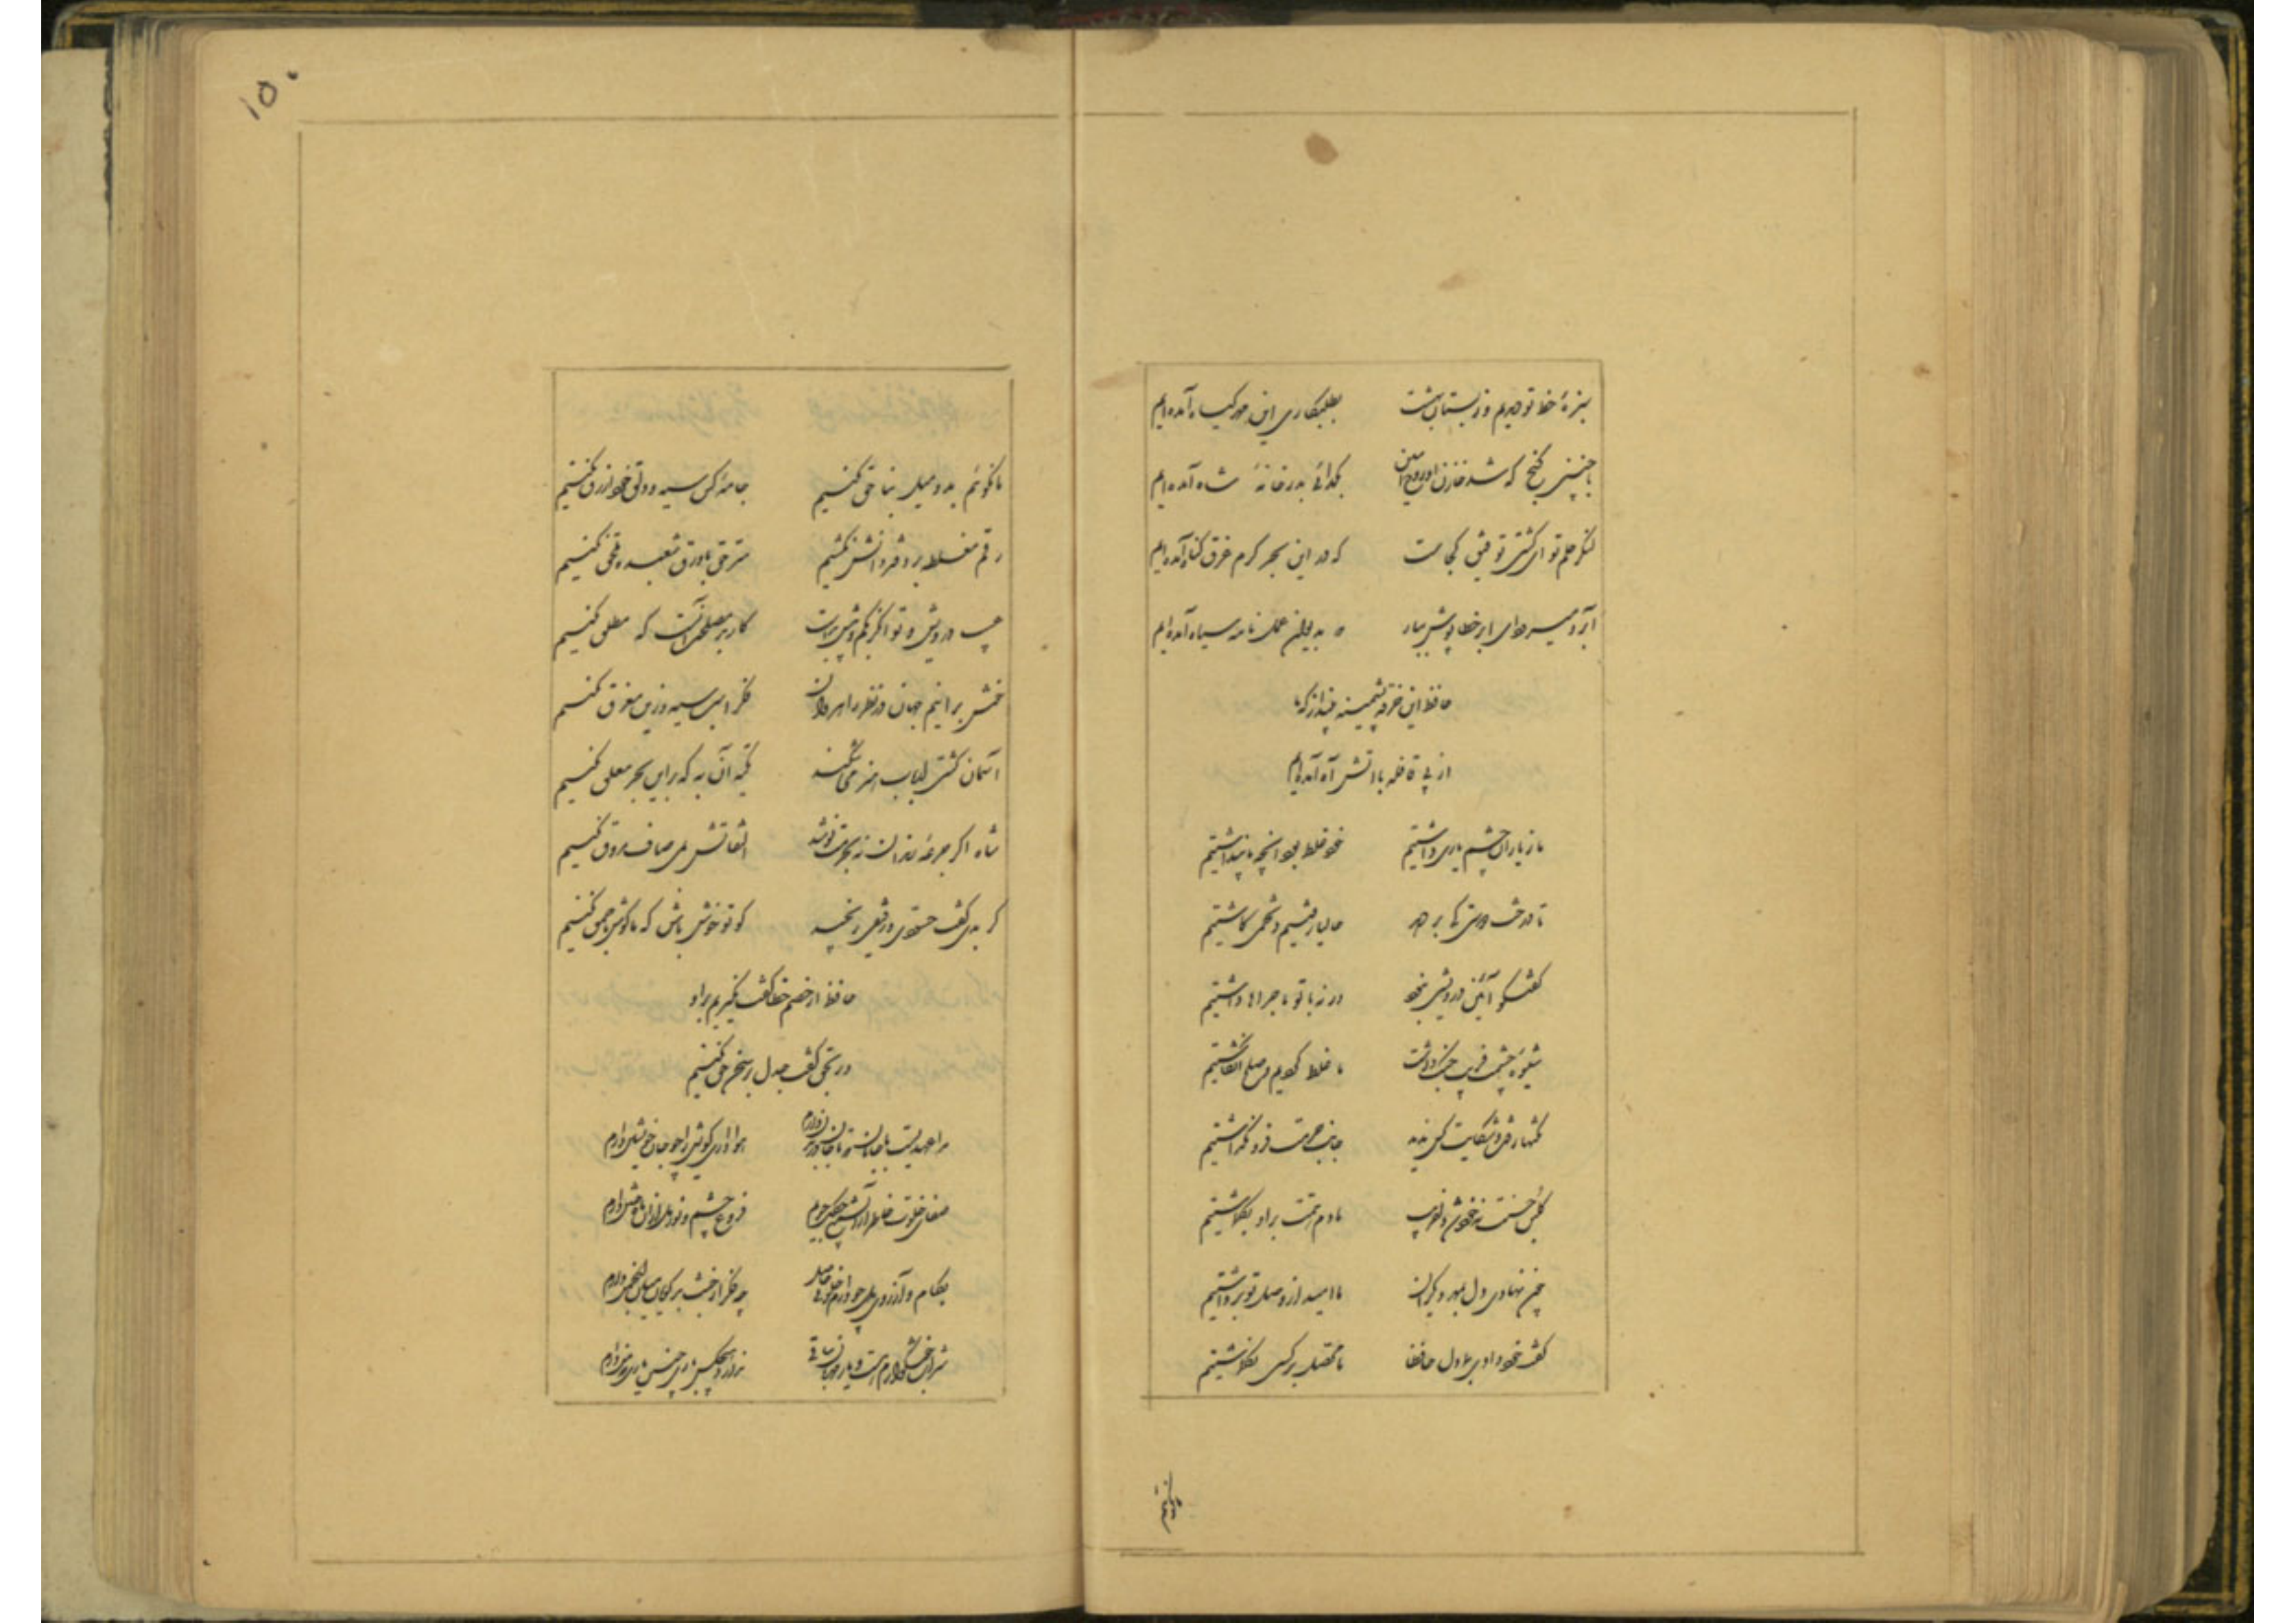 سبزهٔ خط تو دیدیم و ز بستان بهشت بطلبکاری این مهر گیاه آمده‌ایم
با چنین گنج که شد خازن او روح امین بگدائی بدر خانهٔ شاه آمده‌ایم
لنگر حلم تو ای کشتی توفیق کجاست که درین بحر کرم غرق گناه آمده‌ایم
آبرو میرود ای ابر خطاپوش ببار که بدیوان عمل نامه سیاه آمده‌ایم
حافظ این خرقه پشمینه بینداز که ما
از پی قافله با آتش آه آمده‌ایم
ما ز یاران چشم یاری داشتیم خود غلط بود آنچه ما پنداشتیم
تا درخت دوستی کی بر دهد حالیا رفتیم و تخمی کاشتیم
گفتگو آئین درویشی نبود ورنه با تو ماجراها داشتیم
شیوهٔ چشمت فریب جنگ داشت ما غلط کردیم و صلح انگاشتیم
نکتها رفت و شکایت کس ندید جانب حرمت فرو نگذاشتیم
گلبن حسنت نه خود شد دلفریب ما دم همت برو بگماشتیم
چون نهادی دل بمهر دیگران ما امید از وصل تو برداشتیم
گفت خود دادی بما دل حافظا ما محصل بر کسی نگماشتیم
ما نگوئیم
۱۵۰
ما نگوئیم بد و میل بناحق نکنیم جامهٔ کس سیه و دلق خود ازرق نکنیم
رقم مغلطه بر دفتر دانش نکشیم سر حق با ورق شعبده ملحق نکنیم
عیب درویش و توانگر بکم و بیش بدست کار بد مصلحت آنست که مطلق نکنیم
خوش برانیم جهان در نظر راهروان فکر اسب سیه و زین مغرق نکنیم
آسمان کشتی ارباب هنر می‌شکند تکیه آن به که برین بحر معلق نکنیم
شاه اگر جرعهٔ رندان نه بحرمت نوشد التفاتش بمی صاف مروق نکنیم
گر بدی گفت حسودی و رفیقی رنجید گو تو خوش باش که ما گوش باحمق نکنیم
حافظ ار خصم خطا گفت نگیریم برو
ور بحق گفت جدل با سخن حق نکنیم
مرا عهدیست با جانان که تا جان در بدن دارم هواداری کویش را چو جان خویشتن دارم
صفای خلوت خاطر از آن شمع چگل جویم فروغ چشم و نور دل از آن ماه ختن دارم
بکام و آرزوی دل چو دارم خلوتی حاصل چه فکر از خبث بدگویان میان انجمن دارم
شراب خوشگوارم هست و یار مهربان ساقی ندارد هیچکس یاری چنین یاری که من دارم